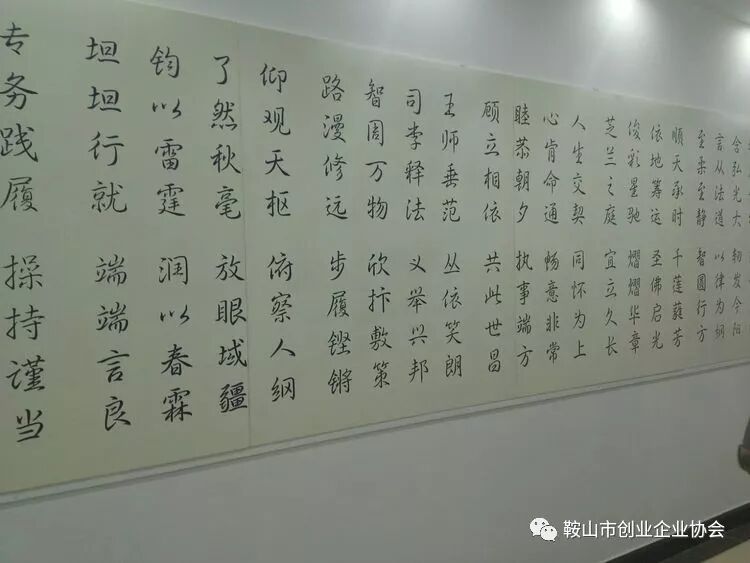 含弘光大
言从法道 以律为纲
至柔至静 智圆行方
顺天承时 千莲蕤芳
依地筹运 圣佛启光
俊彩星驰 熠熠华章
芝兰之庭 宜立久长
人生交契 同怀为上
心肯命通 畅意非常
睦恭朝夕 执事端方
顾立相依 共此世昌
王师垂范 丛依笑朗
司李释法 义举兴邦
智周万物 欣忭敷策
路漫修远 步履铿锵
仰观天枢 俯察人纲
了然秋毫 放眼域疆
钧以雷霆 润以春霖
坦坦行就 端端言良
专务践履 操持谨当
鞍山市创业企业协会